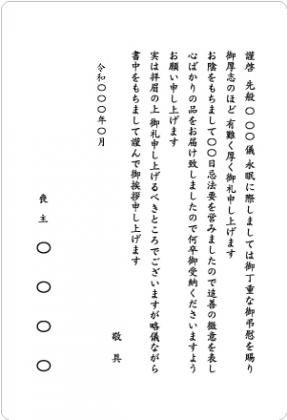 謹啓 先般 〇〇〇 儀 永眠に際しましては御丁重な御弔慰を賜り
御厚志のほど 有難く厚く御礼申し上げます
お陰をもちまして〇〇日忌法要を営みましたので追善の微意を表し
心ばかりの品をお届け致しましたので何卒御受納くださいますよう
お願い申し上げます
実は拝眉の上 御礼申し上げるべきところでございますが略儀ながら
書中をもちまして謹んで御挨拶申し上げます
敬具
令和〇〇〇年〇月
喪主 〇〇〇〇